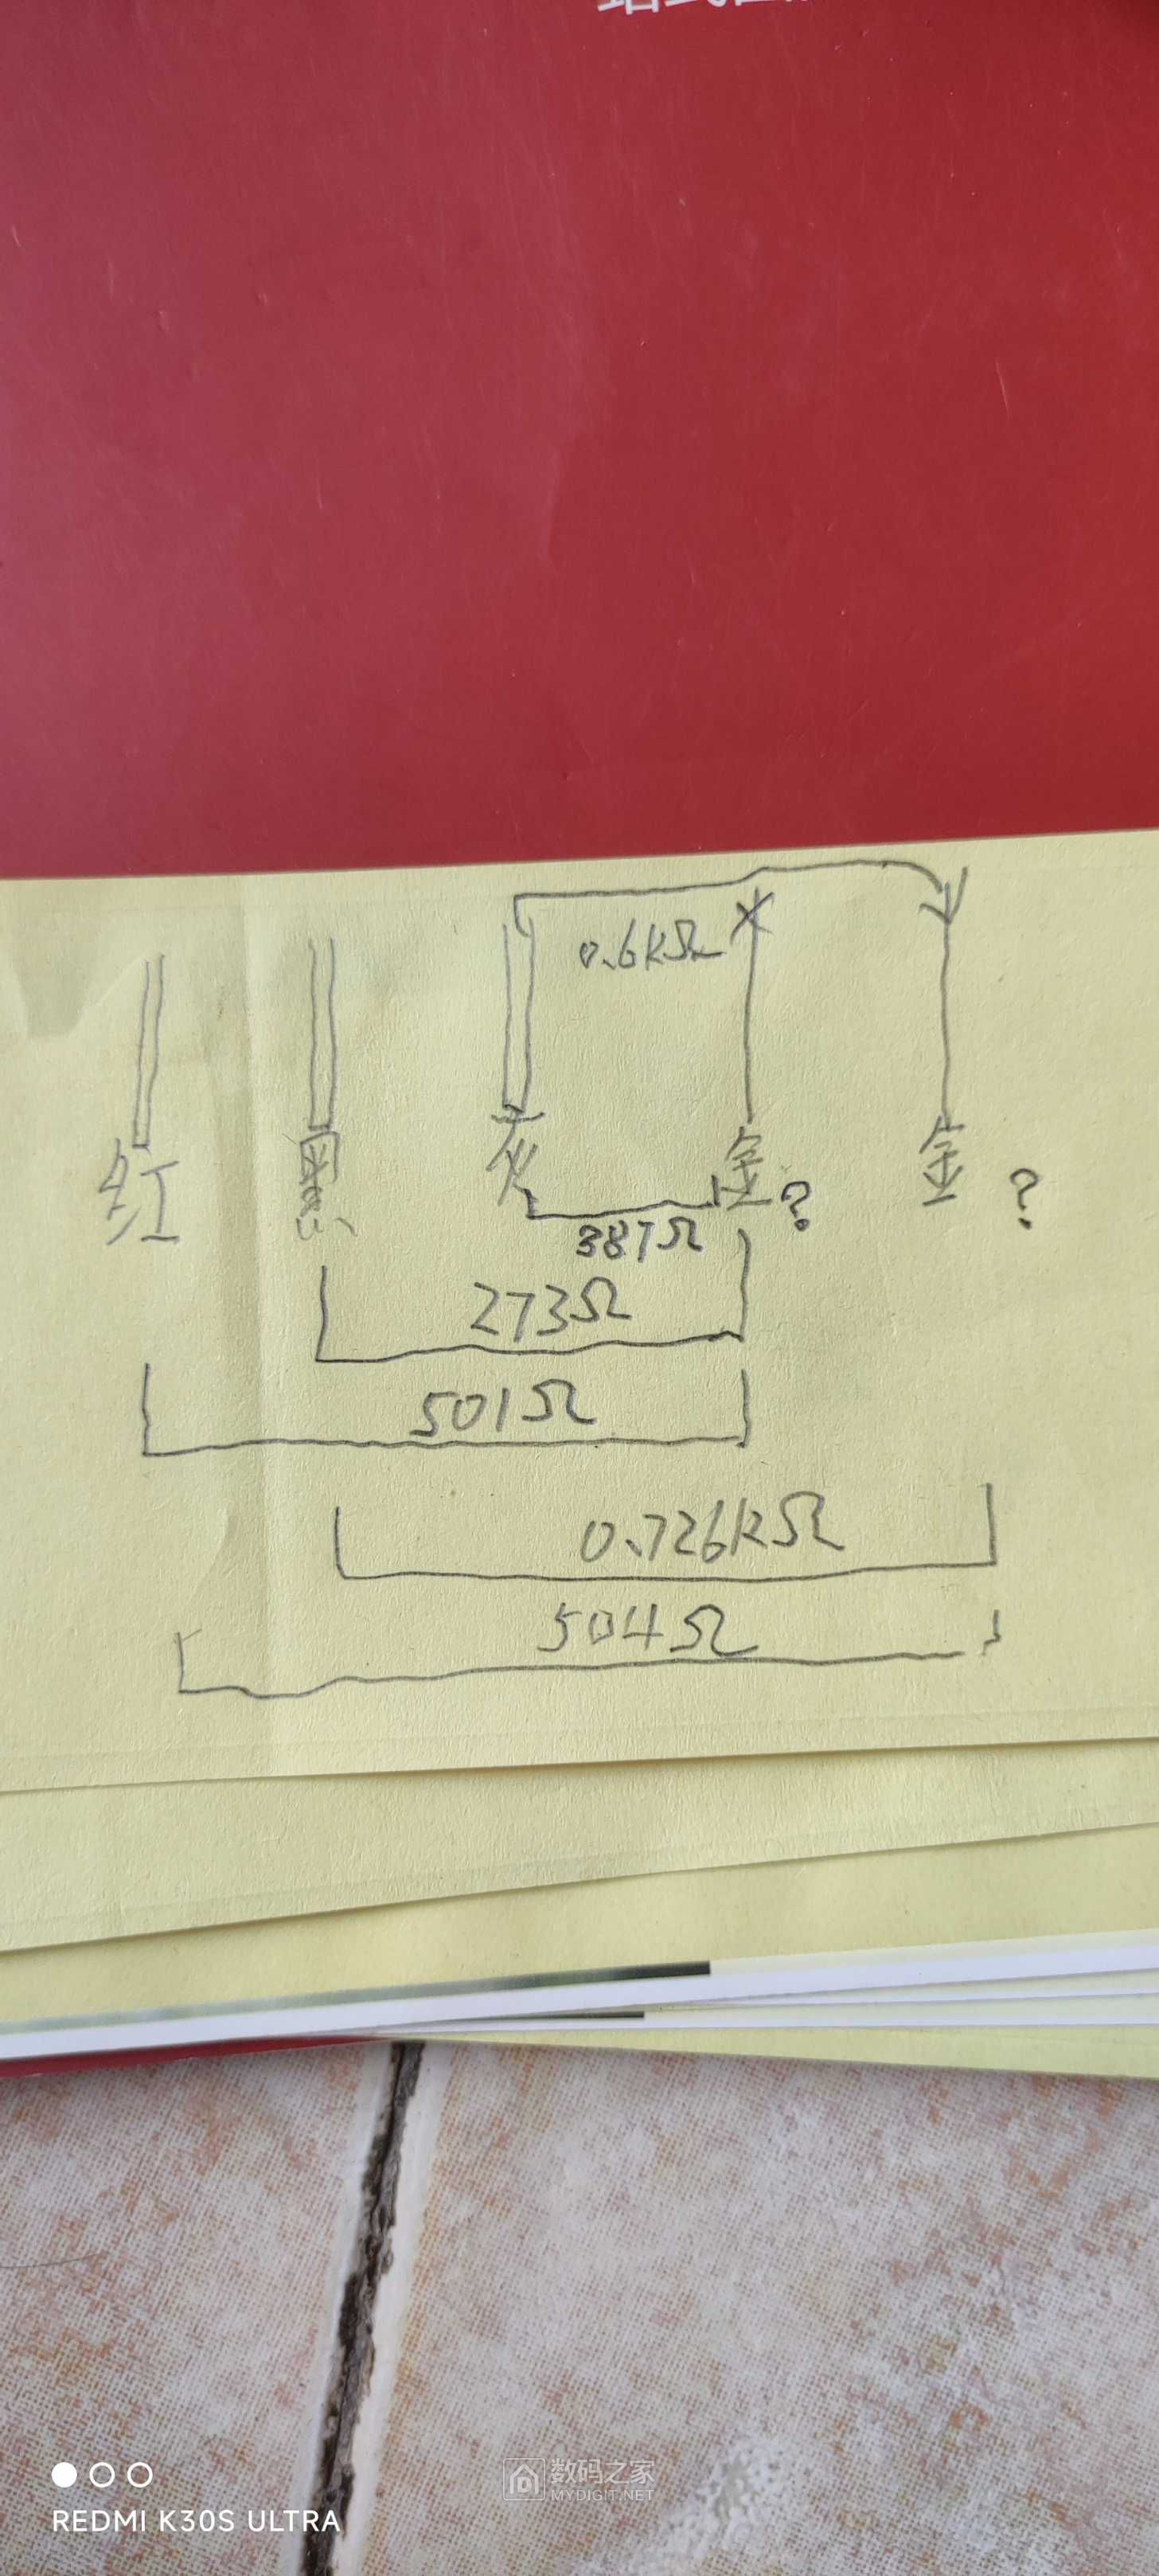 0.6KΩ
红 黑 灰 金? 金?
387Ω
273Ω
501Ω
0.726KΩ
504Ω
数码之家
MYDIGIT.NET
REDMI K30S ULTRA